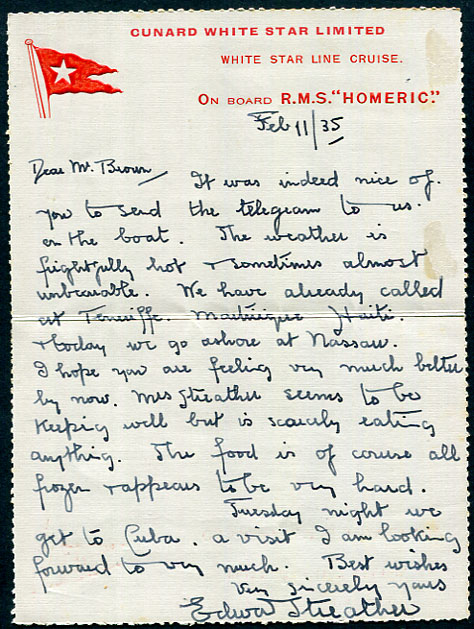 CUNARD WHITE STAR LIMITED
WHITE STAR LINE CRUISE.
ON BOARD R.M.S. "HOMERIC."
Feb 11/35
Dear Mr. Brown
It was indeed nice of
you to send the telegram to us
on the boat. The weather is
frightfully hot & sometimes almost
unbearable. We have already called
at Teneriffe. Martinique Haiti.
& today we go ashore at Nassau.
I hope you are feeling very much better
by now. Mrs Streather seems to be
keeping well but is scarcely eating
anything. The food is of course all
frozen & appears to be very hard.
Tuesday night we
get to Cuba. a visit I am looking
forward to very much. Best wishes
Very sincerely yours
Edward Streather